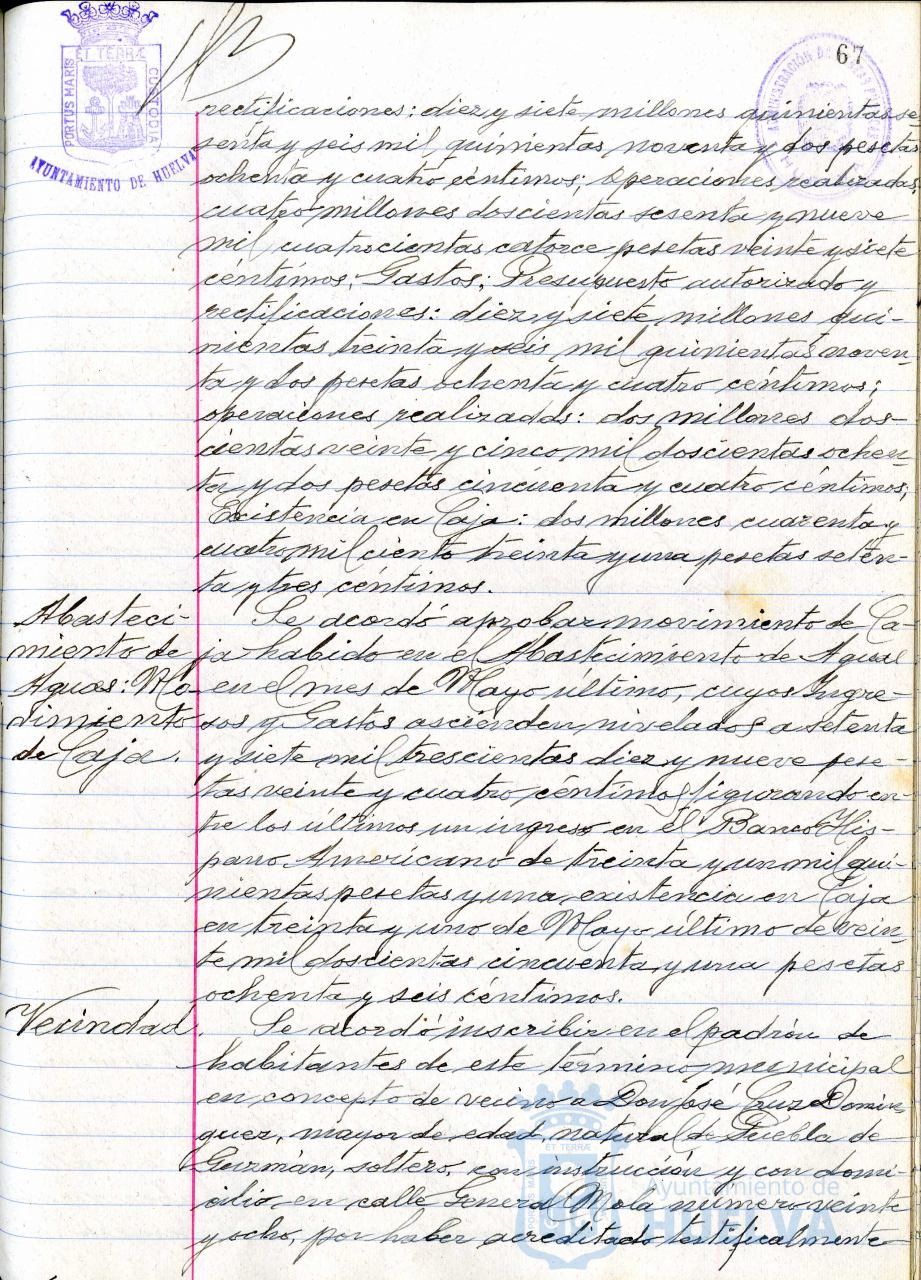 67
PORTUS MARIS ET TERRÆ CUSTODIA
AYUNTAMIENTO DE HUELVA
rectificaciones: diez y siete millones quinientas se-
senta y seis mil quinientas noventa y dos pesetas
ochenta y cuatro céntimos; operaciones realizadas,
cuatro millones doscientas sesenta y nueve
mil cuatrocientas catorce pesetas veinte y siete
centímos, Gastos, Presupuesto autorizado y
rectificaciones: diez y siete millones qui-
nientas treinta y seis mil quinientas noven-
ta y dos pesetas ochenta y cuatro céntimos;
operaciones realizadas: dos millones dos-
cientas veinte y cinco mil doscientas ochen-
ta y dos pesetas cincuenta y cuatro céntimos;
Existencia en Caja: dos millones cuarenta y
cuatro mil ciento treinta y una pesetas seten-
ta y tres céntimos.
Abasteci-
miento de
Aguas: Mo-
vimiento
de Caja.
Se acordó aprobar movimiento de Ca-
ja habido en el Abastecimiento de Aguas
en el mes de Mayo último, cuyos Ingre-
sos y Gastos ascienden nivelados a setenta
y siete mil trescientas diez y nueve pese-
tas veinte y cuatro céntimos, figurando en-
tre los últimos un ingreso en el Banco His-
pano Americano de treinta y un mil qui-
nientas pesetas y una existencia en Caja
en treinta y uno de Mayo último de vein-
te mil doscientas cincuenta y una pesetas
ochenta y seis céntimos.
Vecindad.
Se acordó inscribir en el padrón de
habitantes de este término municipal
en concepto de vecino a Don José Cruz Domin-
guez, mayor de edad, natural de Puebla de
Guzmán, soltero, con instrucción y con domi-
cilio en calle General Mola número veinte
y ocho, por haber acreditado testificalmente
Ayuntamiento de
HUELVA